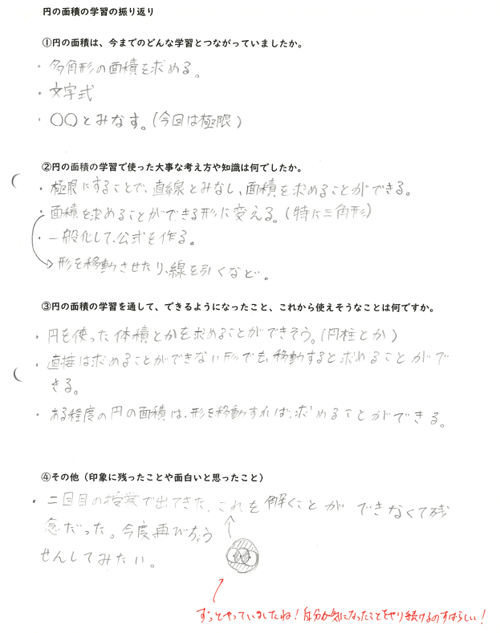 円の面積の学習の振り返り
①円の面積は、今までのどんな学習とつながっていましたか。
・多角形の面積を求める。
・文字式
・○○とみなす。(今回は極限)
②円の面積の学習で使った大事な考え方や知識は何でしたか。
・極限にすることで、直線とみなし、面積を求めることができる。
・面積を求めることができる形に変える。(特に三角形)
・一般化して、公式を作る。
形を移動させたり、線を引くなど。
③円の面積の学習を通して、できるようになったこと、これから使えそうなことは何ですか。
・円を使った体積とかを求めることができそう。(円柱とか)
・直接は求めることができない形でも、移動すると求めることがで
きる。
・ある程度の円の面積は、形を移動すれば、求めることができる。
④その他（印象に残ったことや面白いと思ったこと）
・二回目の授業で出てきた、これを解くことができなくて残
念だった。今度再びちょう
せんしてみたい。
ずっとやっていましたね！自分が気になったことをやり続けるのすばらしい！